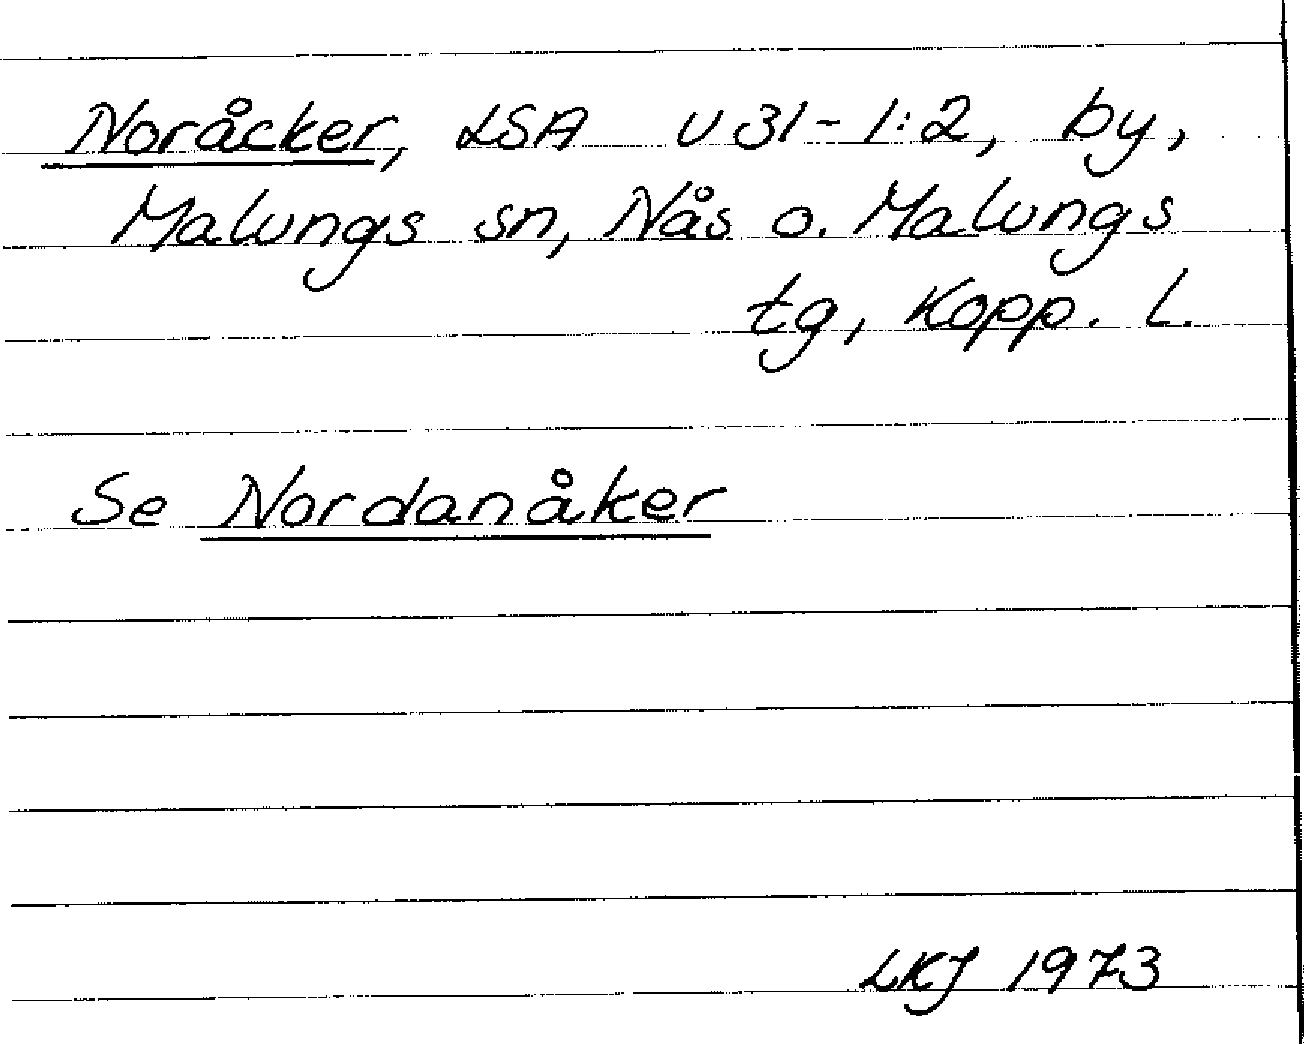 Noråcker, LSA U31-1:2, by,
Malungs sn, Nås o. Malungs
tg, Kopp. l.
Se Nordanåker
LKJ 1973